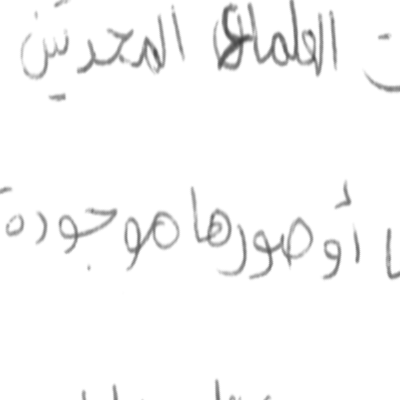 العلماء المحدثين
أو صورها موجودة